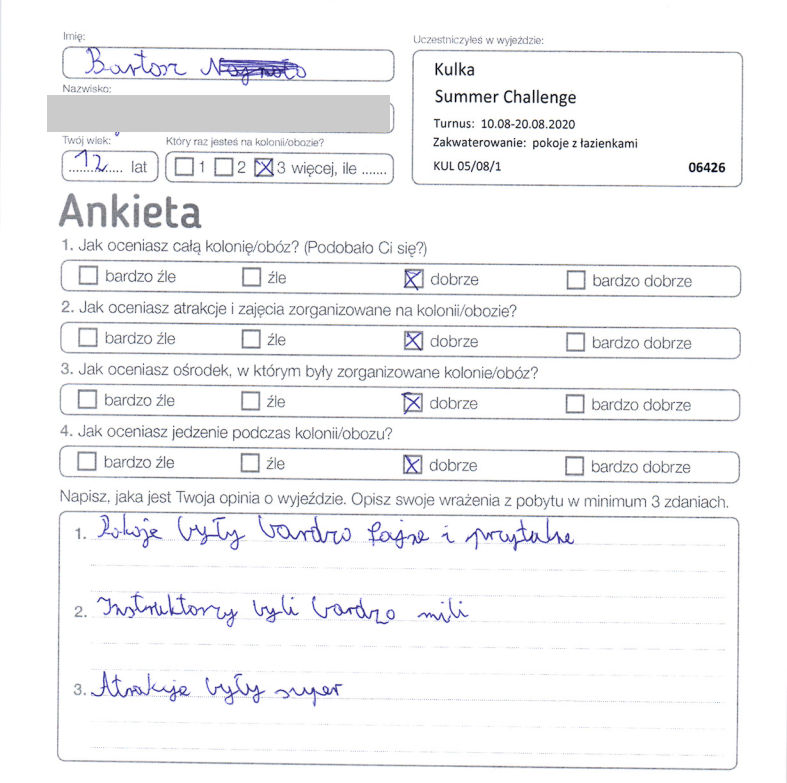 Imię:
Bartosz
Nazwisko:
Twój wiek:
12 lat
Który raz jesteś na kolonii/obozie?
1 2 3 więcej, ile .......
Uczestniczyłeś w wyjeździe:
Kulka
Summer Challenge
Turnus: 10.08-20.08.2020
Zakwaterowanie: pokoje z łazienkami
KUL 05/08/1 06426
Ankieta
1. Jak oceniasz całą kolonię/obóz? (Podobało Ci się?)
bardzo źle źle dobrze bardzo dobrze
2. Jak oceniasz atrakcje i zajęcia zorganizowane na kolonii/obozie?
bardzo źle źle dobrze bardzo dobrze
3. Jak oceniasz ośrodek, w którym były zorganizowane kolonie/obóz?
bardzo źle źle dobrze bardzo dobrze
4. Jak oceniasz jedzenie podczas kolonii/obozu?
bardzo źle źle dobrze bardzo dobrze
Napisz, jaka jest Twoja opinia o wyjeździe. Opisz swoje wrażenia z pobytu w minimum 3 zdaniach.
1. Pokoje były bardzo fajne i przytulne
2. Instruktorzy byli bardzo mili
3. Atrakcje były super